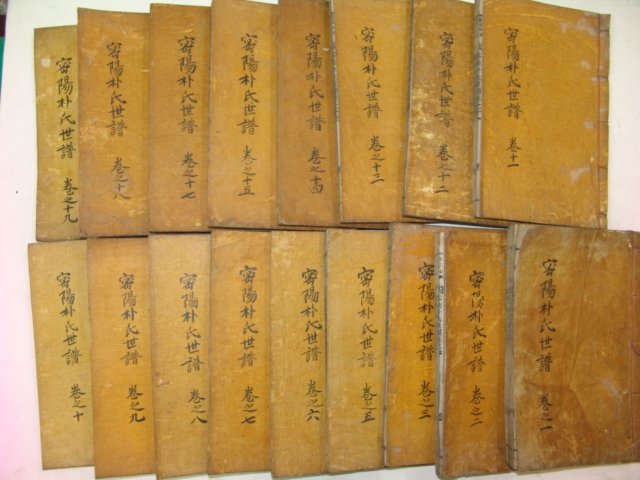 密陽朴氏世譜 卷十一
密陽朴氏世譜 卷之十二
密陽朴氏世譜 卷之十三
密陽朴氏世譜 卷之十四
密陽朴氏世譜 卷之十五
密陽朴氏世譜 卷之十七
密陽朴氏世譜 卷之十八
密陽朴氏世譜 卷之十九
密陽朴氏世譜 卷之一
密陽朴氏世譜 卷之二
密陽朴氏世譜 卷之三
密陽朴氏世譜 卷之五
密陽朴氏世譜 卷之六
密陽朴氏世譜 卷之七
密陽朴氏世譜 卷之八
密陽朴氏世譜 卷之九
密陽朴氏世譜 卷之十